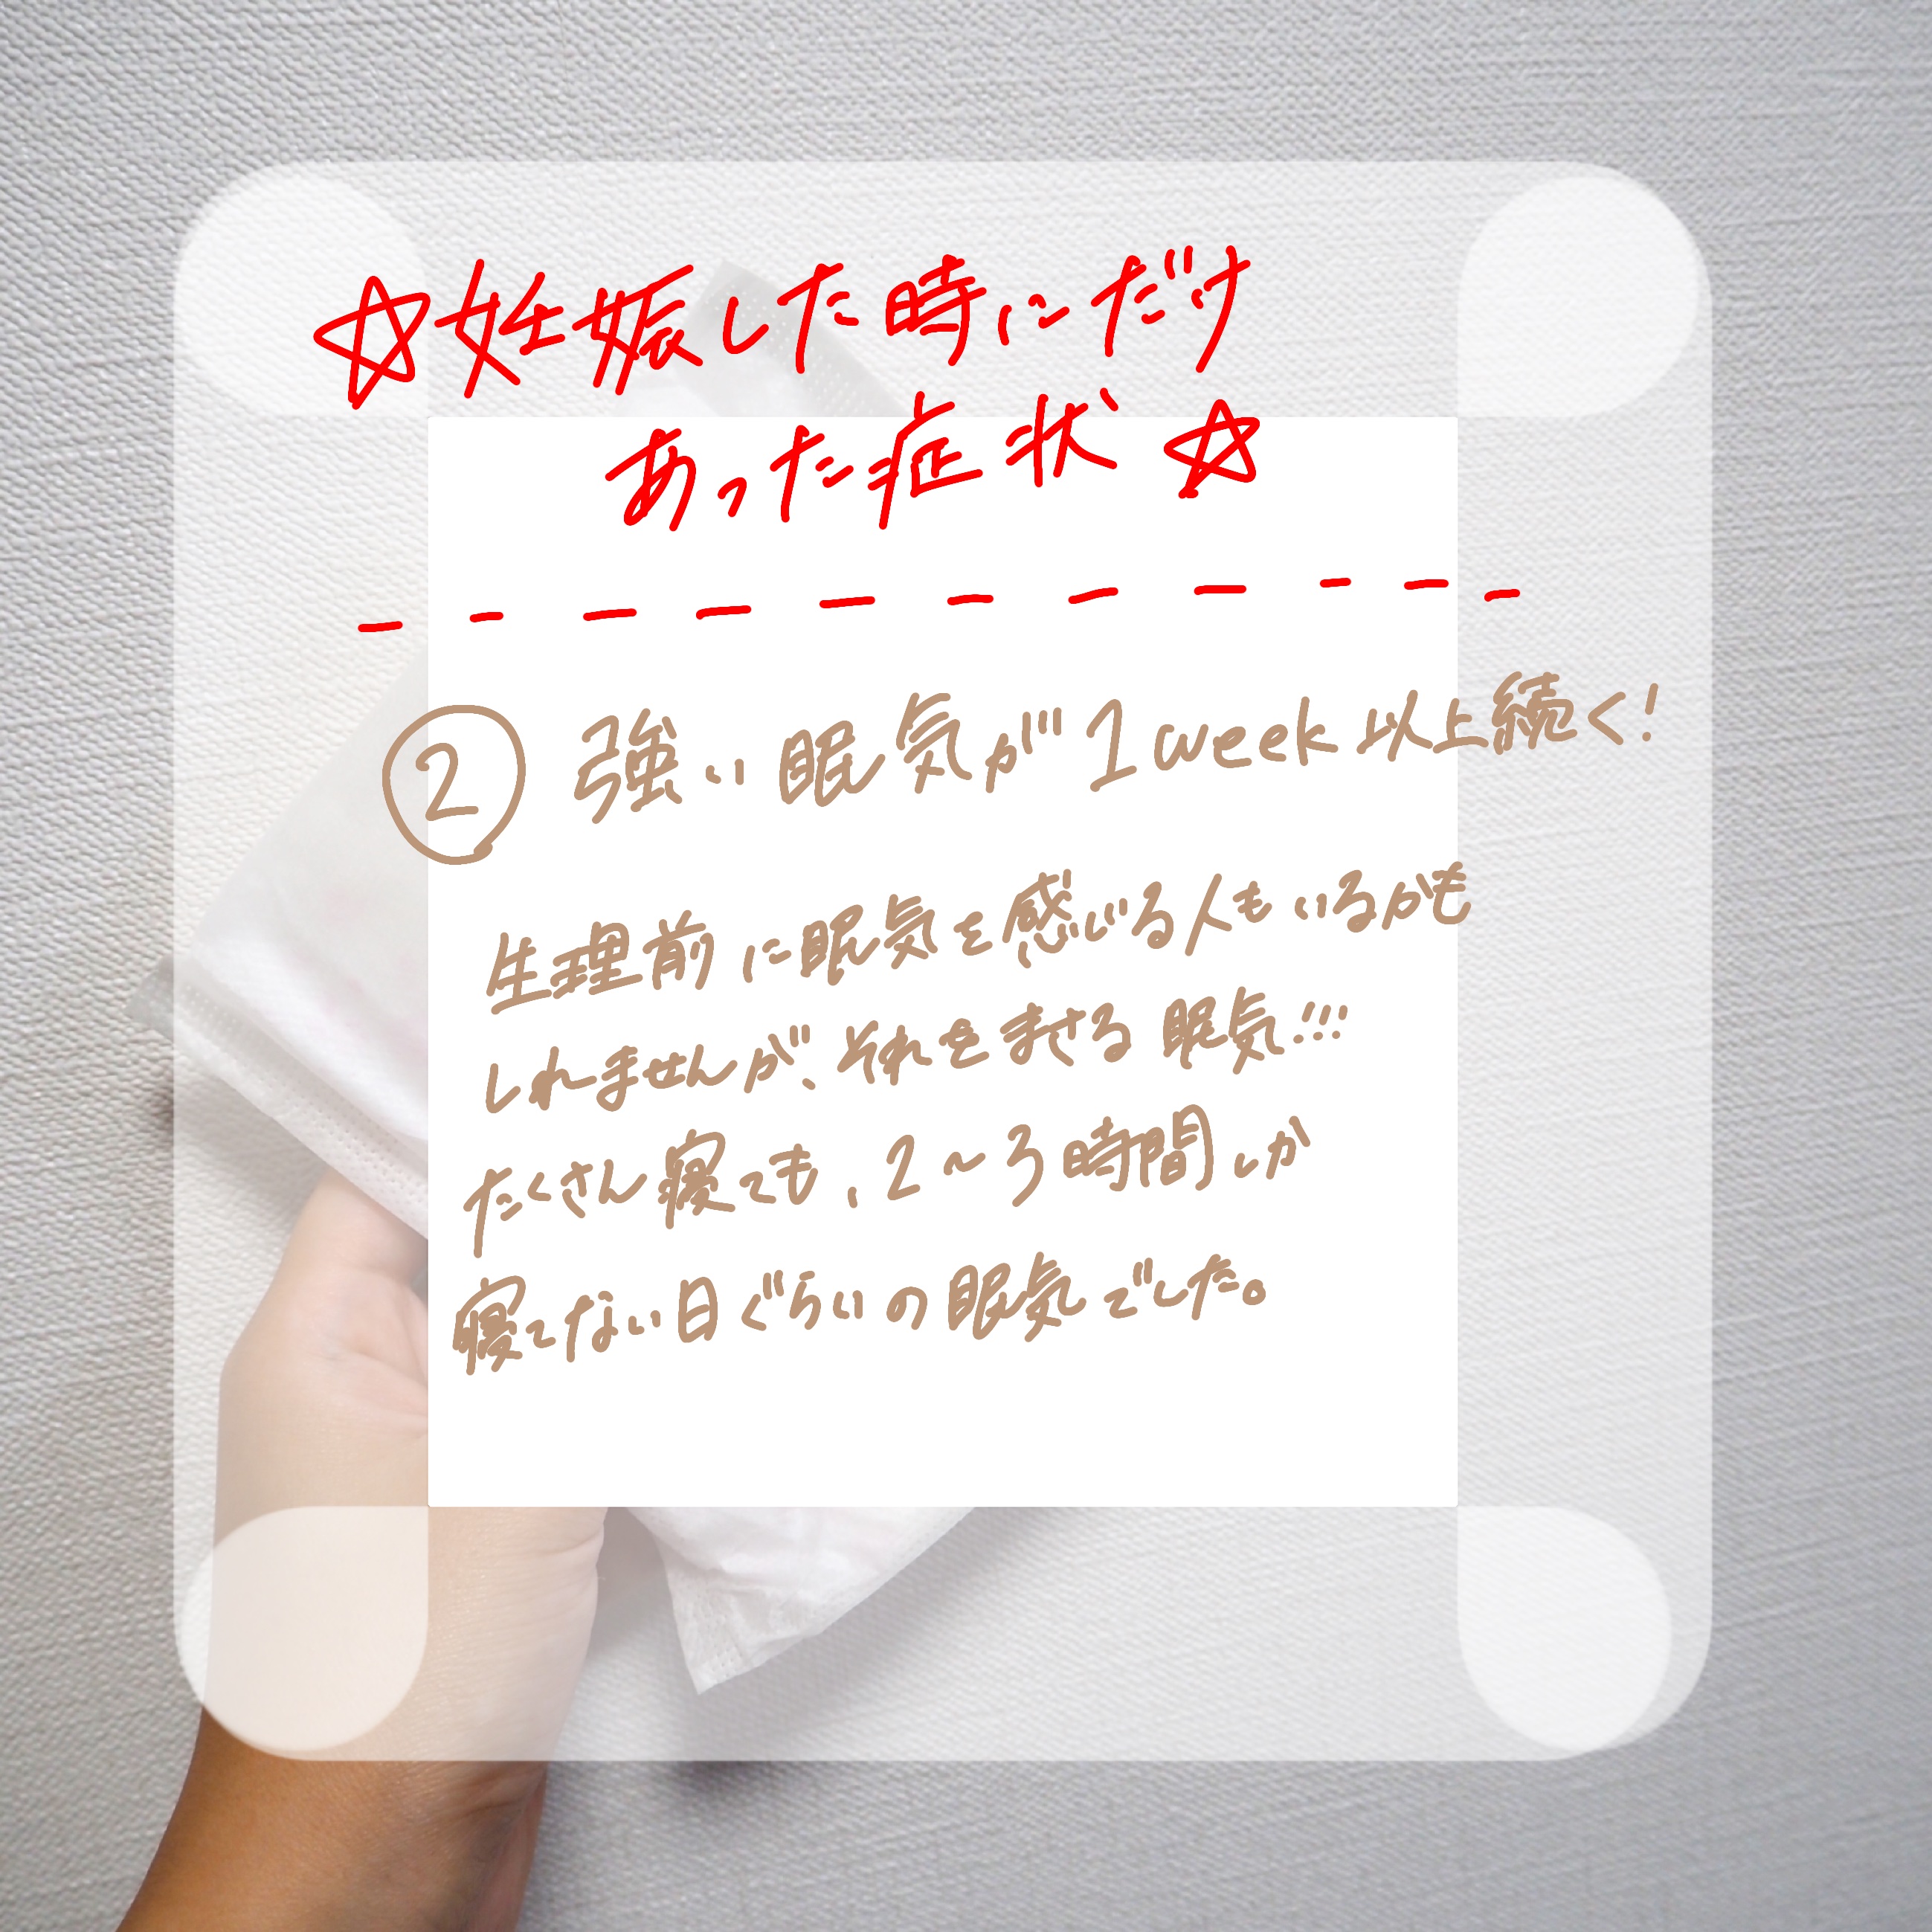 ☆妊娠した時にだけ
あった症状☆
② 強い眠気が1week以上続く!
生理前に眠気を感じる人もいるかも
しれませんが、それをまさる眠気!!!
たくさん寝ても、2~3時間しか
寝てない日ぐらいの眠気でした。